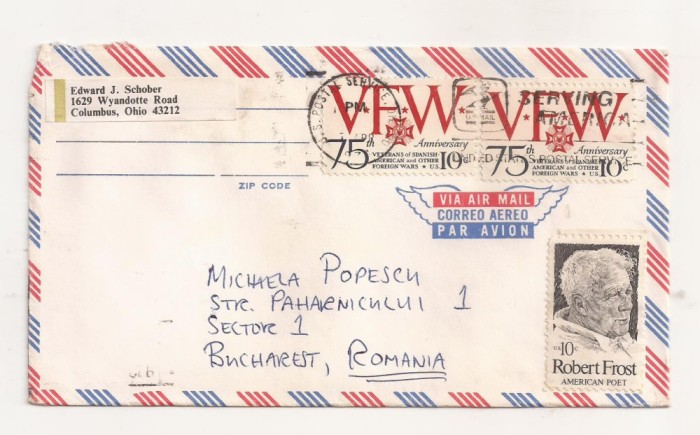 Edward J. Schober
1629 Wyandotte Road
Columbus, Ohio 43212
ZIP CODE
U.S. POSTAL SERVICE
PM
VFW
75th Anniversary
VETERANS OF SPANISH-
AMERICAN and OTHER
FOREIGN WARS ★ U.S. 10c
U.S. MAIL
SERVING
AMERICA
UNITED STATES POSTAL SERVICE
VFW
75th Anniversary
VETERANS OF SPANISH-
AMERICAN and OTHER
FOREIGN WARS ★ U.S. 10c
VIA AIR MAIL
CORREO AEREO
PAR AVION
MICHAELA POPESCU
STR. PAHARNICULUI 1
SECTOR 1
BUCHAREST, ROMANIA
US 10c
Robert Frost
AMERICAN POET